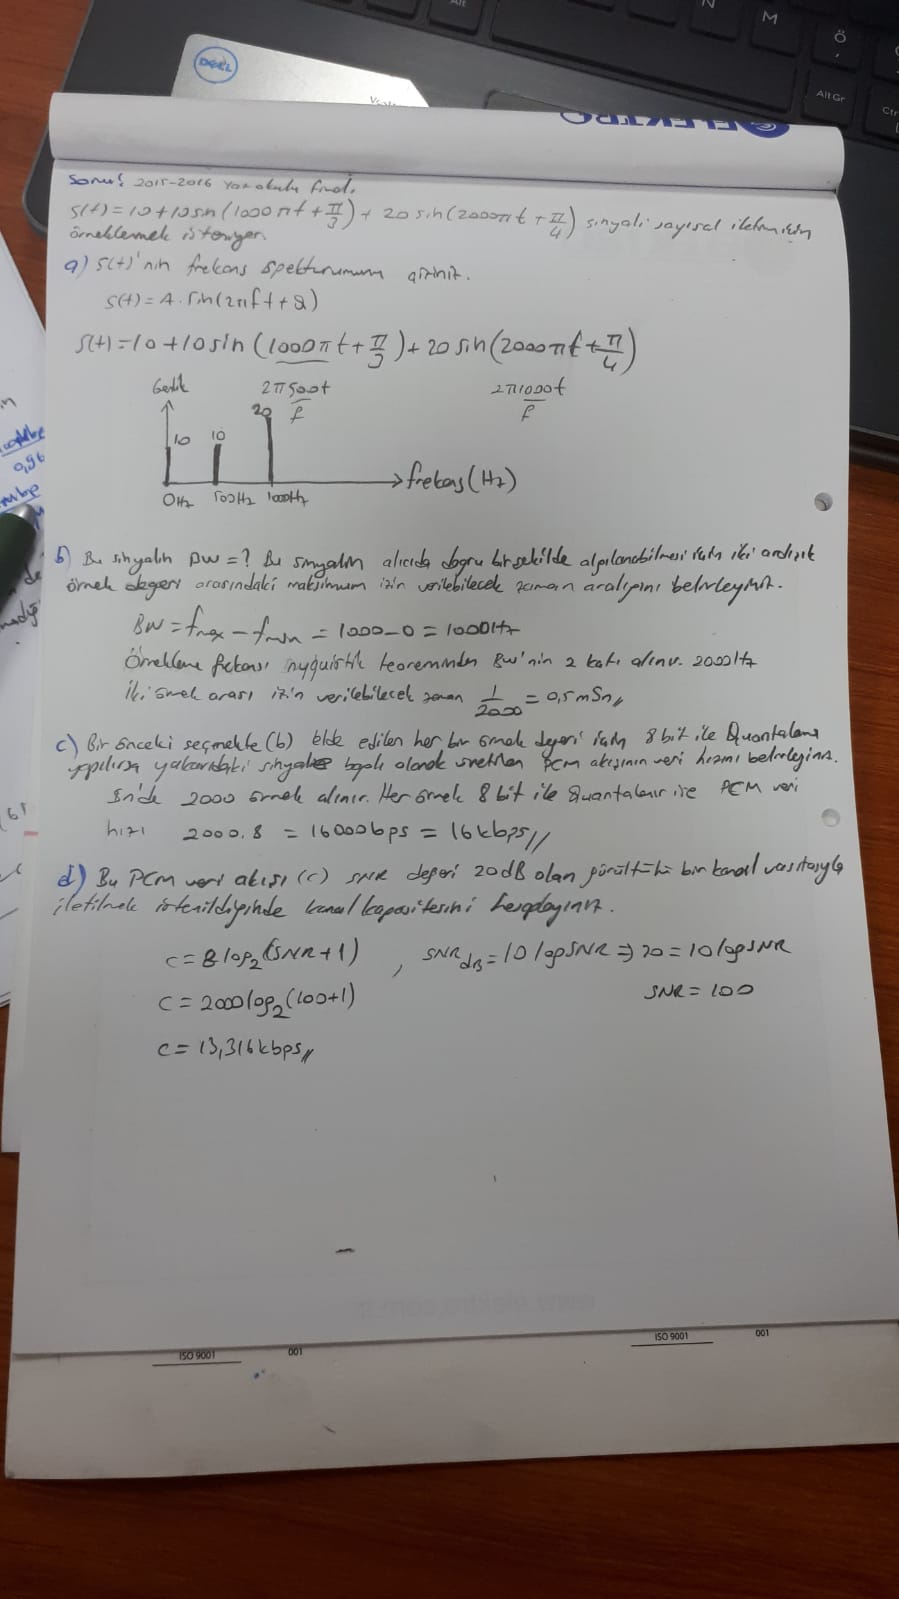 DELL
Alt
N
M
Ö
Alt Gr
Ctr
ELEKTRO
Soru: 2015-2016 Yaz okulu final.
s(t)=10+10sin(1000πt+π/3)+20sin(2000πt+π/4) sinyali sayısal iletim için
örneklenmek isteniyor.
a) s(t)'nin frekans spektrumunu çiziniz.
s(t)=A.sin(2πft+θ)
s(t)=10+10sin(1000πt+π/3)+20sin(2000πt+π/4)
Genlik 2π500t 2π1000t
f f
10 10 20
→frekans(Hz)
0Hz 500Hz 1000Hz
b) Bu sinyalin BW=? Bu sinyalin alıcıda doğru bir şekilde algılanabilmesi için iki ardışık
örnek değeri arasındaki maksimum izin verilebilecek zaman aralığını belirleyiniz.
BW=fmax-fmin=1000-0=1000Hz
Örnekleme frekansı nyquistlik teoreminden BW'nin 2 katı alınır. 2000Hz
İki örnek arası izin verilebilecek zaman 1/2000=0,5mSn//
c) Bir önceki seçenekte (b) elde edilen her bir örnek değeri için 8 bit ile Quantalama
yapılırsa yukarıdaki sinyale bağlı olarak üretilen PCM akışının veri hızını belirleyiniz.
Sn'de 2000 örnek alınır. Her örnek 8 bit ile Quantalanır ise PCM veri
hızı 2000.8 = 16000bps = 16kbps//
d) Bu PCM veri akışı (c) SNR değeri 20dB olan gürültülü bir kanal vasıtasıyla
iletilmek istenildiğinde kanal kapasitesini hesaplayınız.
C=Blog₂(SNR+1) , SNRdB=10logSNR⇒20=10logSNR
C=2000log₂(100+1) SNR=100
C=13,316kbps//
www.elektro.com.tr
ISO 9001 001
ISO 9001 001